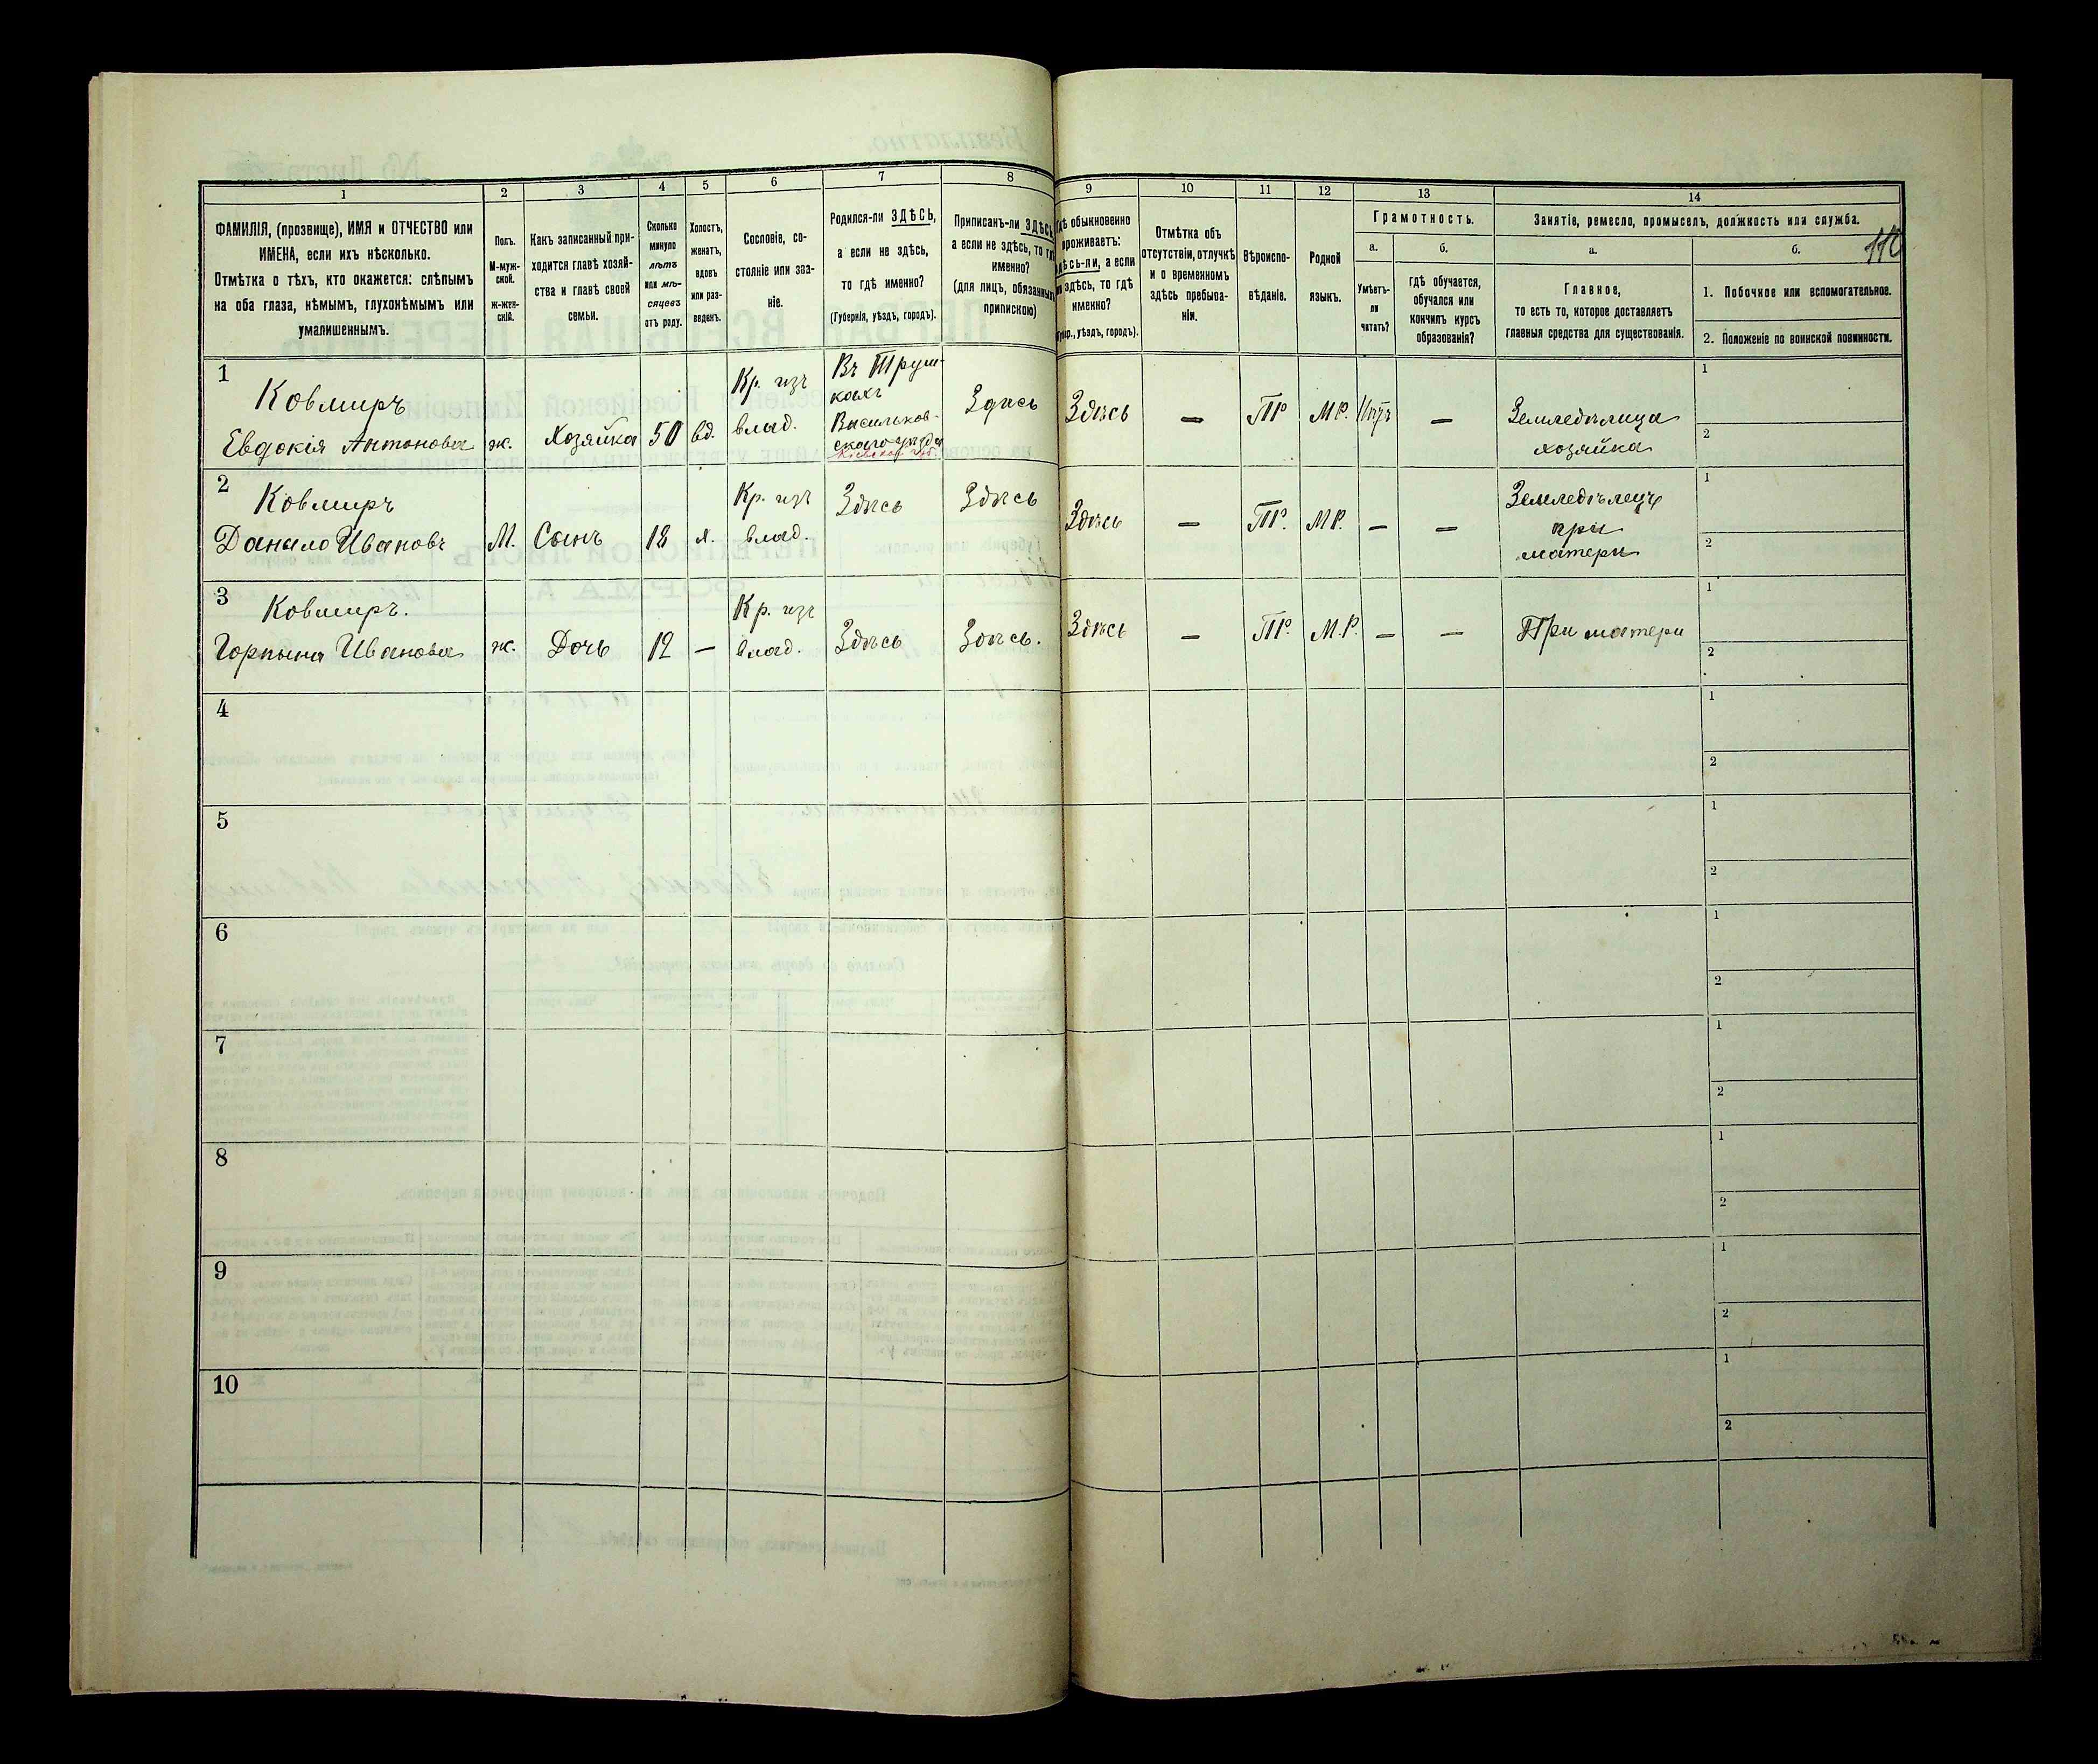 1 2 3 4 5 6 7 8 9 10 11 12 13 14
ФАМИЛІЯ, (прозвище), ИМЯ и ОТЧЕСТВО или
ИМЕНА, если ихъ нѣсколько.
Отмѣтка о тѣхъ, кто окажется: слѣпымъ
на оба глаза, нѣмымъ, глухонѣмымъ или
умалишеннымъ.
Полъ.
М-муж-
ской.
ж-жен-
скій.
Какъ записанный при-
ходится главѣ хозяй-
ства и главѣ своей
семьи.
Сколько
минуло
лѣтъ
или мѣ-
сяцевъ
отъ роду.
Холостъ,
женатъ,
вдовъ
или раз-
веденъ.
Сословіе, со-
стояніе или зва-
ніе.
Родился-ли ЗДѢСЬ,
а если не здѣсь,
то гдѣ именно?
(Губернія, уѣздъ, городъ).
Приписанъ-ли ЗДѢСЬ,
а если не здѣсь, то гдѣ
именно?
(для лицъ, обязанныхъ
припиской)
Гдѣ обыкновенно
проживаетъ:
здѣсь-ли, а если
не здѣсь, то гдѣ
именно?
уѣздъ, городъ).
Отмѣтка объ
отсутствіи, отлучкѣ
и о временномъ
здѣсь пребыва-
ніи.
Вѣроиспо-
вѣданіе.
Родной
языкъ.
Грамотность.
а.
Умѣетъ-
ли
читать?
б.
Гдѣ обучается,
обучался или
кончилъ курсъ
образованія?
Занятіе, ремесло, промыселъ, должность или служба.
а.
Главное,
то есть то, которое доставляетъ
главныя средства для существованія.
б.
1. Побочное или вспомогательное.
2. Положеніе по воинской повинности.
1
Ковширъ
Евдокія Антонова
ж.
Хозяйка
50
вд.
Кр. изъ
влад.
Въ Труш-
кахъ
Васильков-
скаго уѣзда
Здѣсь
Здѣсь
—
ПР
МР.
—
Земледѣлица
хозяйка
1
2
2
Ковширъ
Данило Ивановъ
М.
Сынъ
18
х.
Кр. изъ
влад.
Здѣсь
Здѣсь
Здѣсь
—
ПР.
МР.
—
—
Земледѣлецъ
при
матери
1
2
3
Ковширъ.
Горпына Иванова
ж.
Дочь
12
—
Кр. изъ
влад.
Здѣсь
Здѣсь.
Здѣсь
—
ПР.
М.Р.
—
—
При матери
1
2
4
1
2
5
1
2
6
1
2
7
1
2
8
1
2
9
1
2
10
1
2